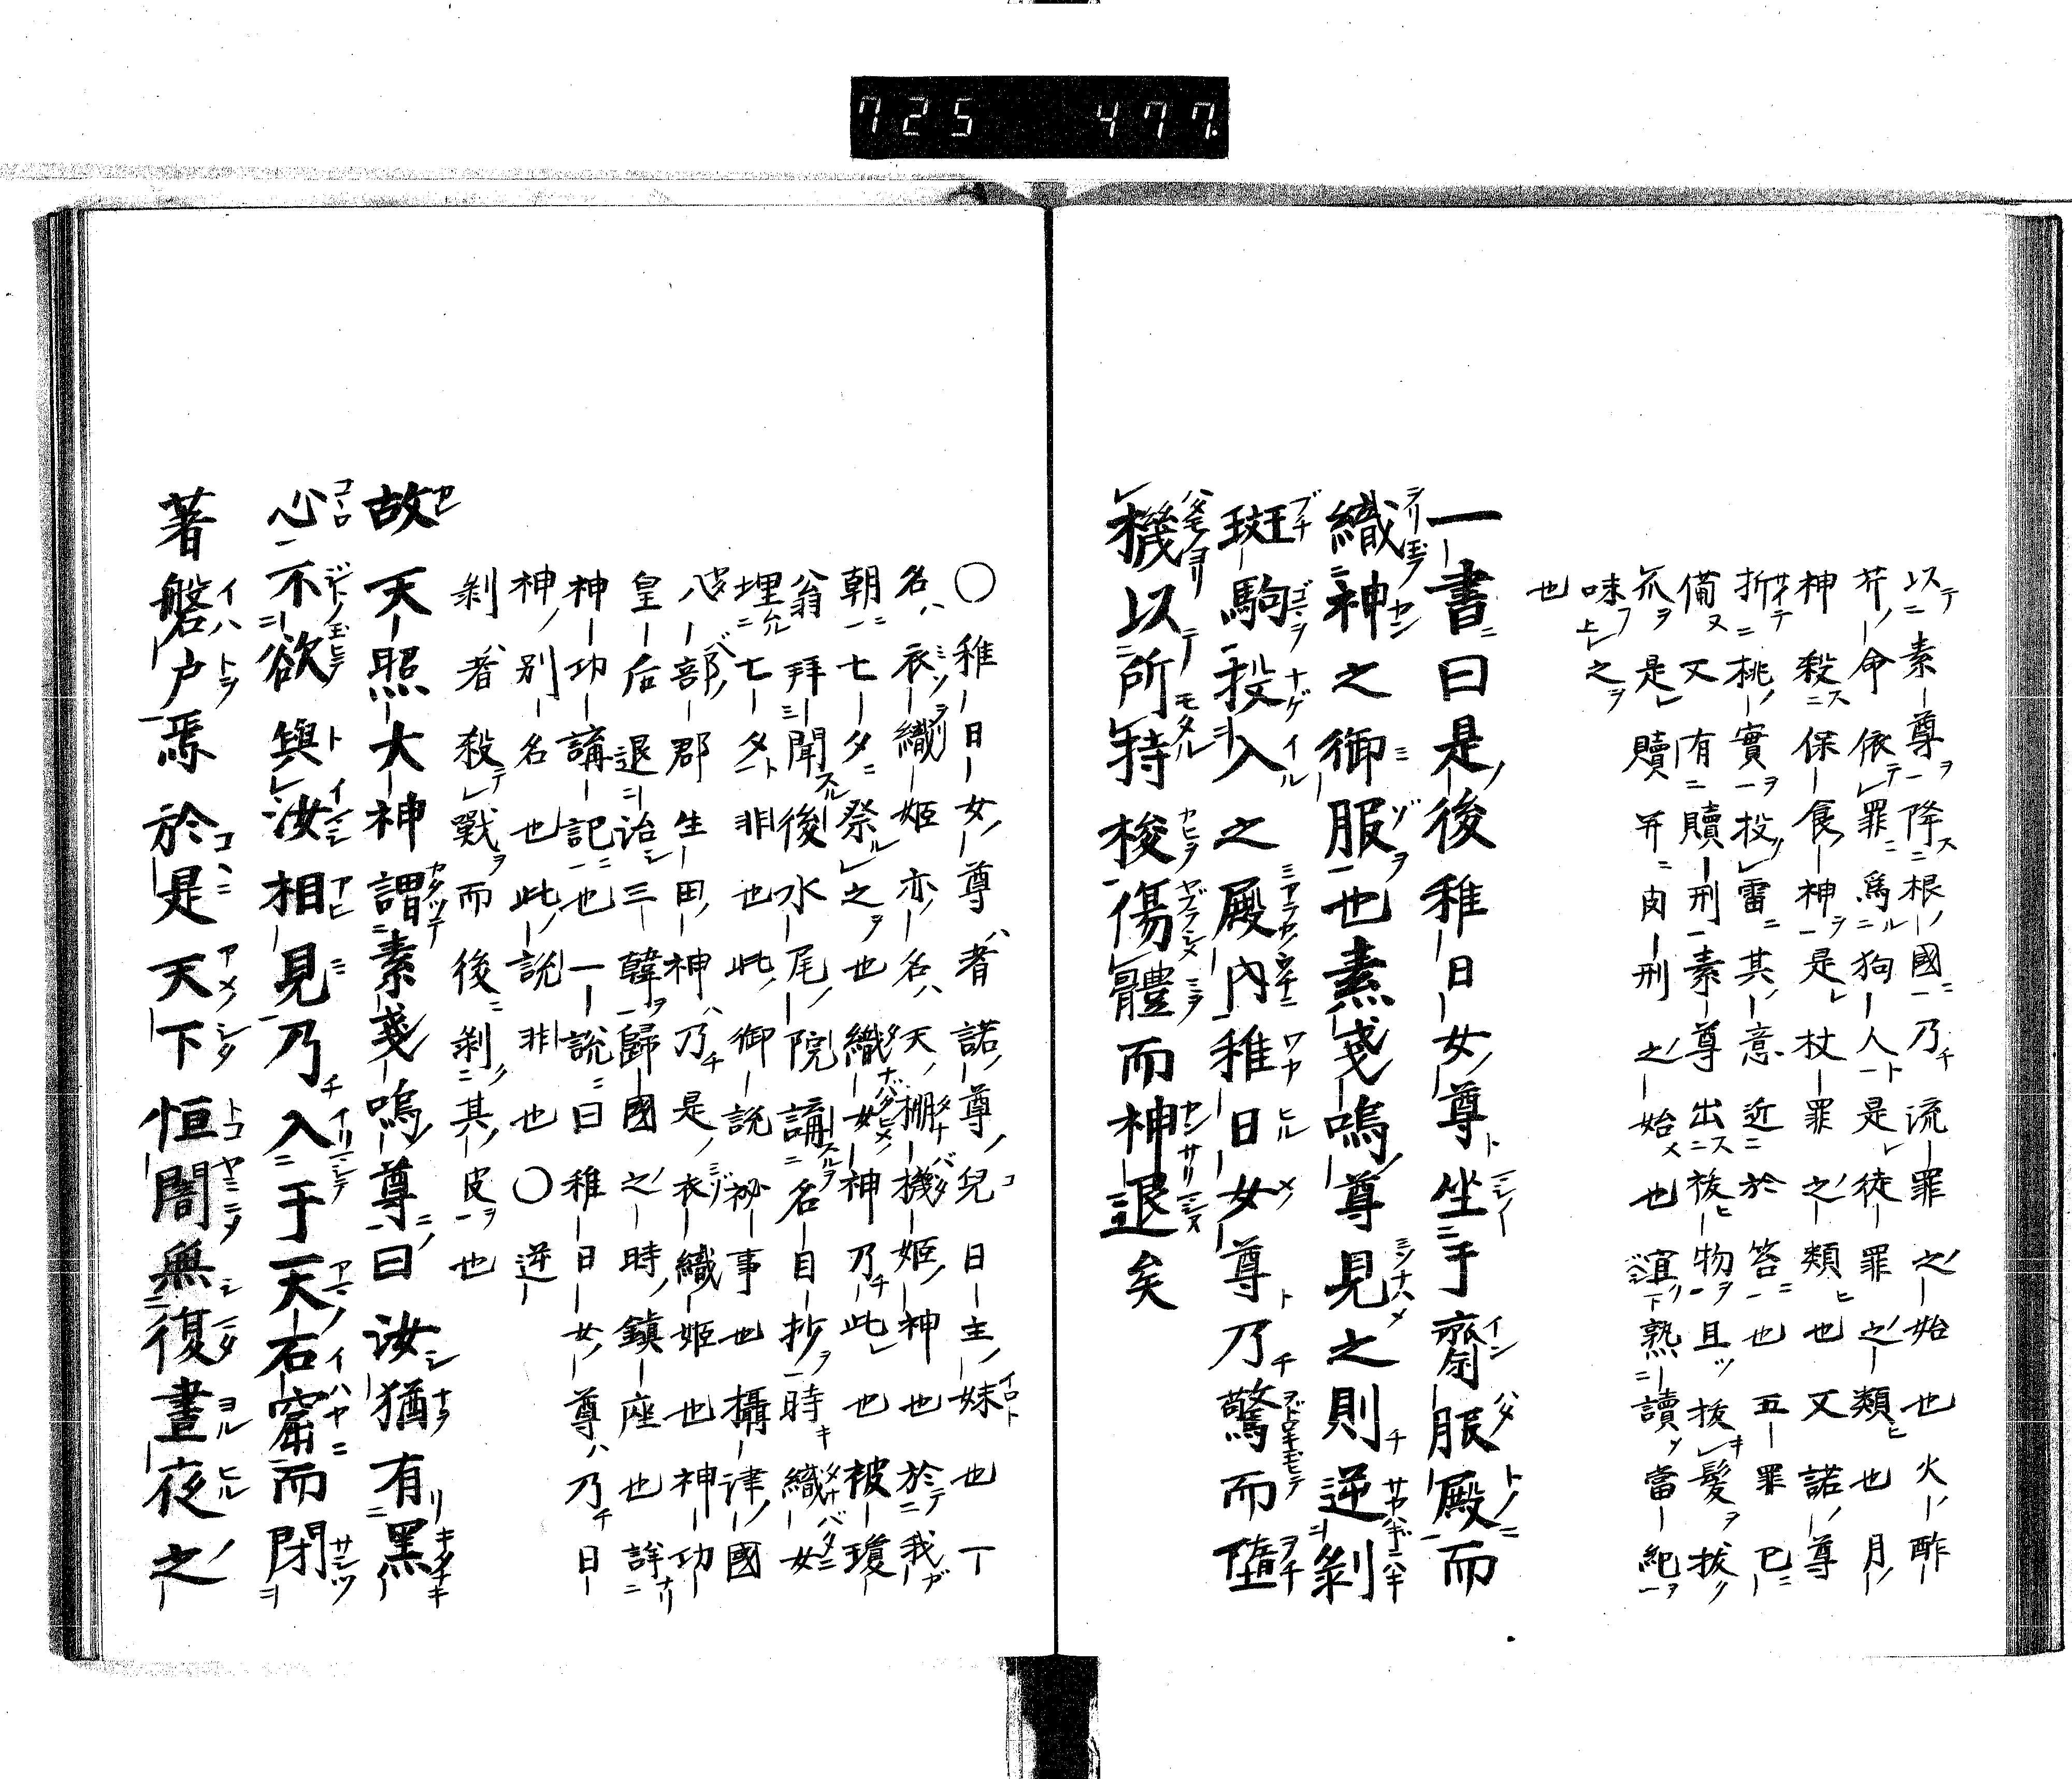 725 477
以素尊降根國乃流罪之始也火酢
芹命依罪爲狗人是徒罪之類也月
神殺保食神是杖罪之類也又諾尊
折桃實投雷其意近於笞也五罪已
備又有贖刑素尊出祓物且拔髮拔
爪是贖并肉刑之始也宜熟讀當紀
味之
也
一書曰是後稚日女尊坐于齋服殿而
織神之御服也素戔嗚尊見之則逆剝
斑駒投入之殿內稚日女尊乃驚而墮
機以所持梭傷體而神退矣
〇稚日女尊者諾尊兒日主妹也一
名衣織姬亦名天棚機姬神也於我
朝七夕祭之也織女神乃此也被瓊
翁拜聞後水尾院講名目抄時織女
埋七夕非也此御說祕事也攝津國
八部郡生田神乃是衣織姬也神功
皇后退治三韓歸國之時鎮座也詳
神功講記也一說曰稚日女尊乃日
神別名也此說非也〇逆
剝者殺戰而後剝其皮也
故天照大神謂素戔嗚尊曰汝猶有黑
心不欲與汝相見乃入于天石窟而閉
著磐戶焉於是天下恒闇無復晝夜之